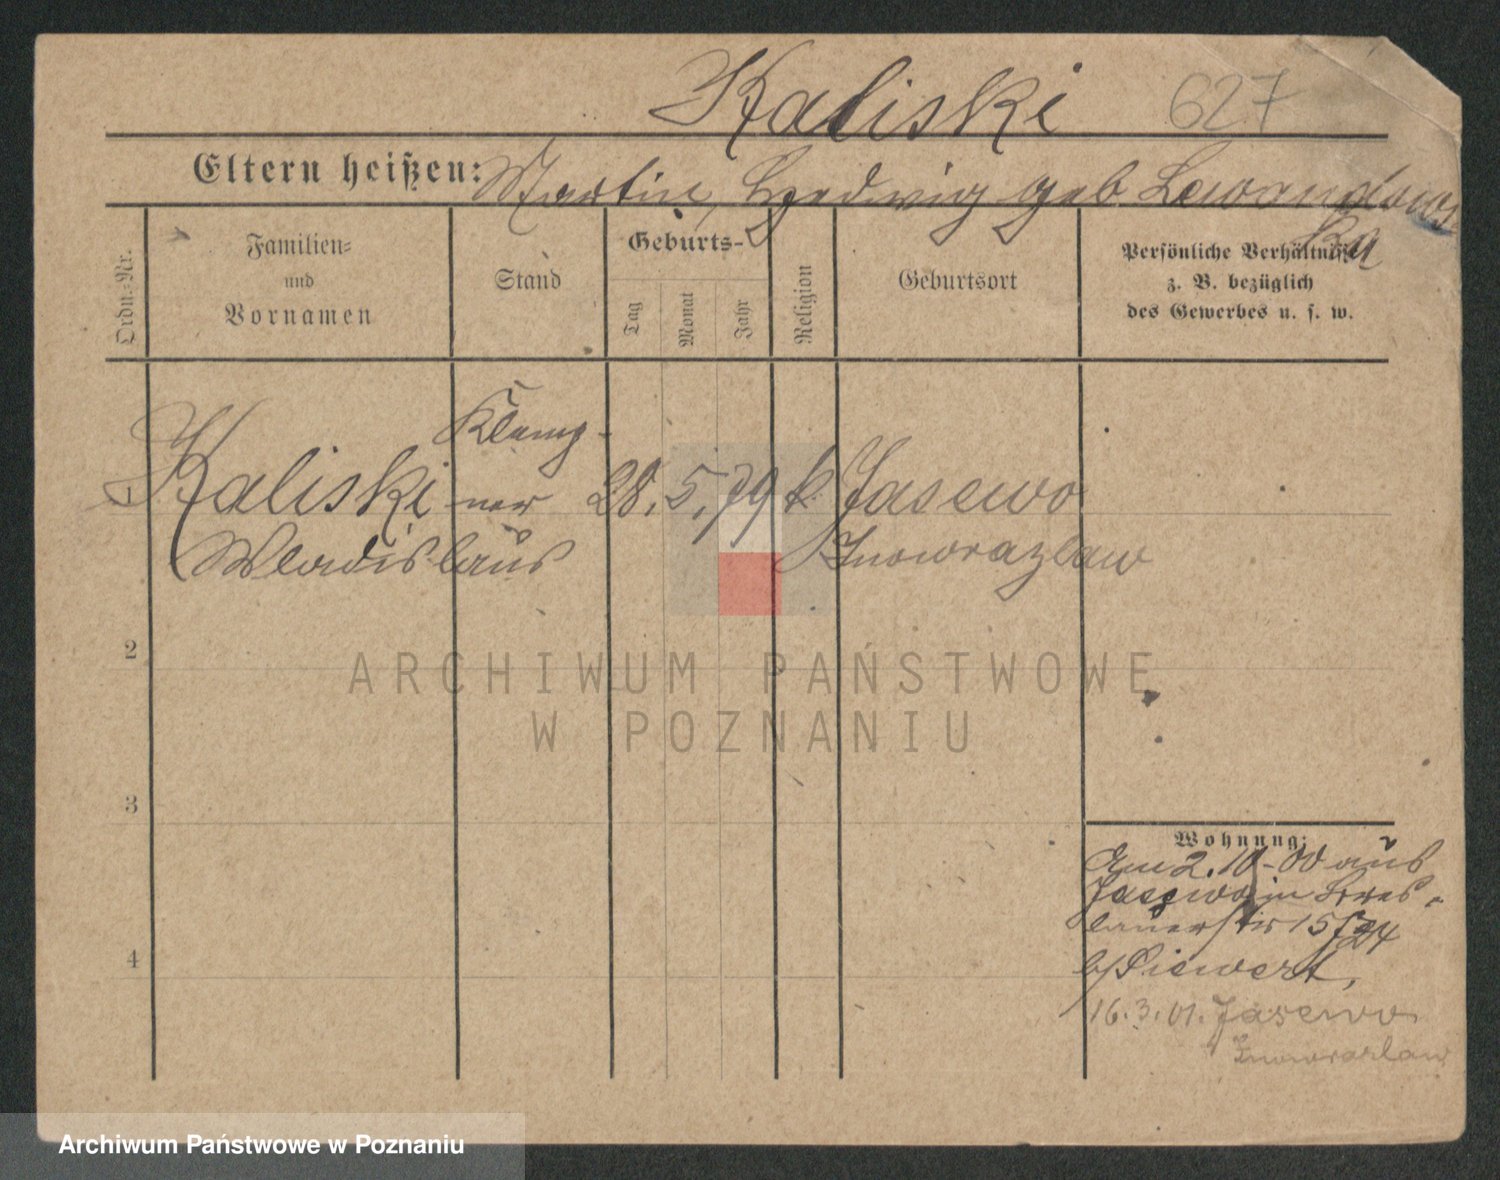 Kaliski 627
Eltern heißen: Martin, Hedwig geb. Lewandows
ka
Ordn.-Nr.
Familien-
und
Vornamen
Stand
Geburts-
Tag
Monat
Jahr
Religion
Geburtsort
Persönliche Verhältnisse
z. B. bezüglich
des Gewerbes u. s. w.
Klemp-
1 Kaliski ner 28. 5. 79 k Jasewo
Wladislaus Inowrazlaw
2
ARCHIWUM PAŃSTWOWE
W POZNANIU
3
Wohnung:
Am 2.10.00 aus
Jasewo in Bres-
lauerstr 15
b/Siewert,
4
16.3.01. Jasewo
Inowrazlaw
Archiwum Państwowe w Poznaniu